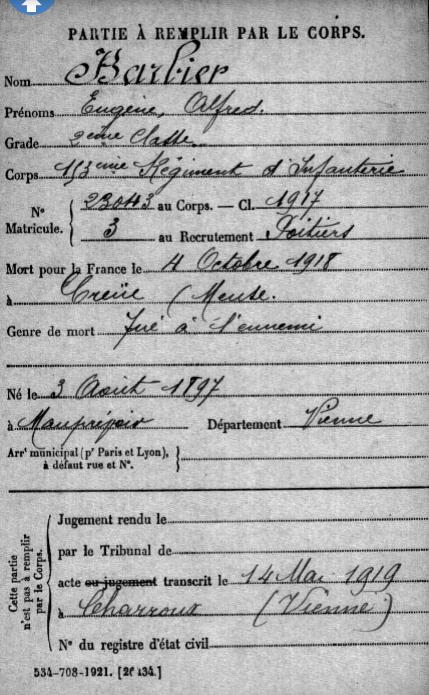 PARTIE À REMPLIR PAR LE CORPS.
Nom Barbier
Prénoms Eugène, Alfred.
Grade 2ème Classe
Corps 153ème Régiment d'Infanterie
N° Matricule. 23043 au Corps. — Cl. 1917
3 au Recrutement Poitiers
Mort pour la France le 4 Octobre 1918
à Creüe (Meuse.
Genre de mort Tué à l'ennemi
Né le 3 Août 1897
à Mauprévoir Département Vienne
Arrt municipal (pr Paris et Lyon),
à défaut rue et N°.
Cette partie
n'est pas à remplir
par le Corps.
Jugement rendu le
par le Tribunal de
acte ou jugement transcrit le 14 Mai 1919
à Charroux (Vienne)
N° du registre d'état civil
534-708-1921. [26434.]